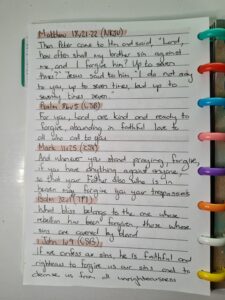 Matthew 18:21-22 (NKJV)
Then Peter came to Him and said, "Lord,
how often shall my brother sin against
me, and I forgive him? Up to seven
times?" Jesus said to him, "I do not say
to you, up to seven times, but up to
seventy times seven."
Psalm 86:5
For you, Lord, are kind and ready to
forgive, abounding in faithful love to
all who call to you
Mark 11:25
And whenever you stand praying, forgive,
if you have anything against anyone,
so that your Father also who is in
heaven may forgive you your trespasses
Psalm 32:1
What bliss belongs to the one whose
rebellion has been forgiven, those whose
sins are covered by blood
1 John 1:9
If we confess our sins, he is faithful and
righteous to forgive us our sins and to
cleanse us from all unrighteousness